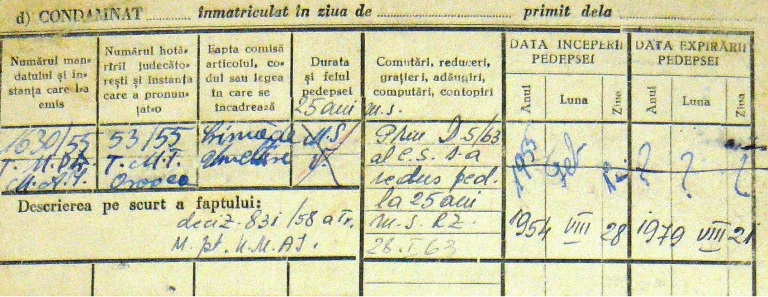 d) CONDAMNAT ........ înmatriculat în ziua de ........ primit dela ........
Numărul mandatului și instanța care l-a emis
Numărul hotărîrii judecătorești și instanța care a pronunțat-o
Fapta comisă articolul, codul sau legea în care se încadrează
Durata și felul pedepsei
25 ani
Comutări, reduceri, grațieri, adăugiri, computări, contopiri
m.s.
DATA INCEPERII PEDEPSEI
Anul
Luna
Ziua
DATA EXPIRĂRII PEDEPSEI
Anul
Luna
Ziua
1630/55
T. M.
53/55
T. M. T.
M.S.
V.
Prin D 5/63
al C.S. s-a
redus ped.
la 25 ani
m.s. RZ.
28.I.63
?
?
?
1954 VIII 28
1979 VIII 21
Descrierea pe scurt a faptului:
deciz. 831/58 a Tr.
M. pt. U.M.A.I.